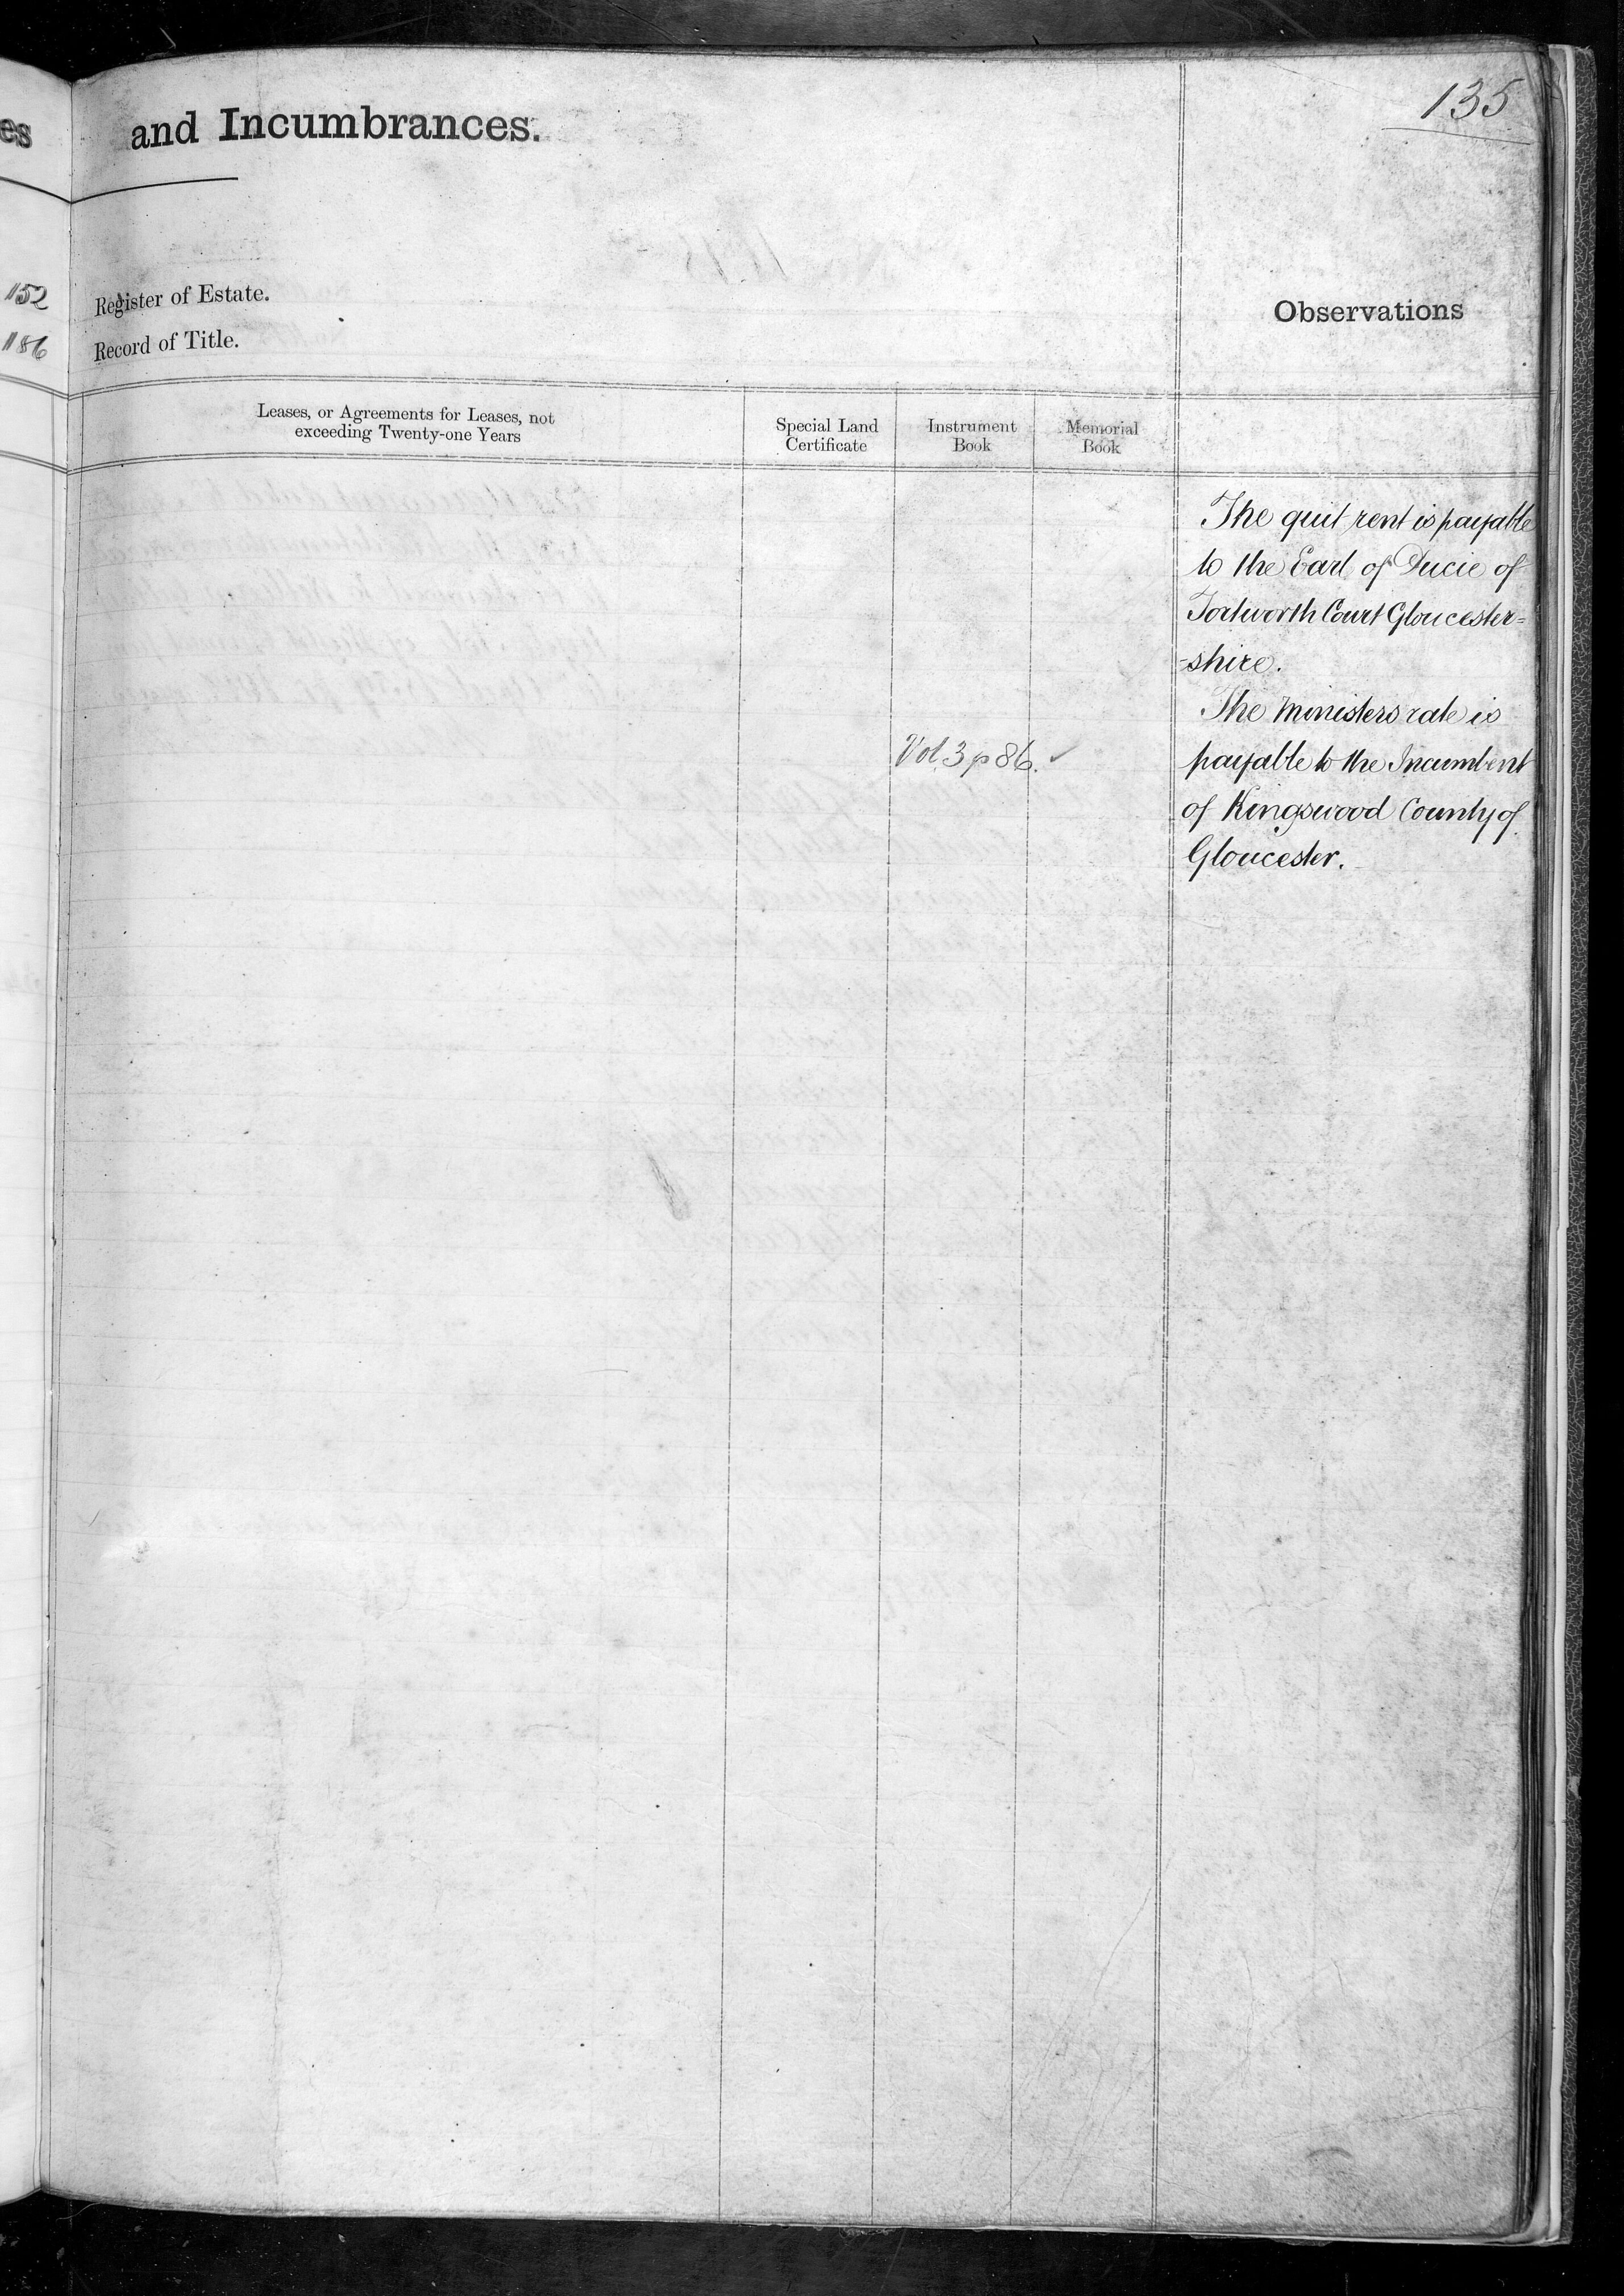 135
es and Incumbrances.
152 Register of Estate.
186 Record of Title.
Observations
Leases, or Agreements for Leases, not
exceeding Twenty-one Years
Special Land
Certificate
Instrument
Book
Memorial
Book
The quit rent is payable
to the Earl of Ducie of
Tortworth Court Gloucester=
-shire.
The Ministers rate is
payable to the Incumbent
of Kingswood County of
Gloucester.
Vol. 3 p 86.